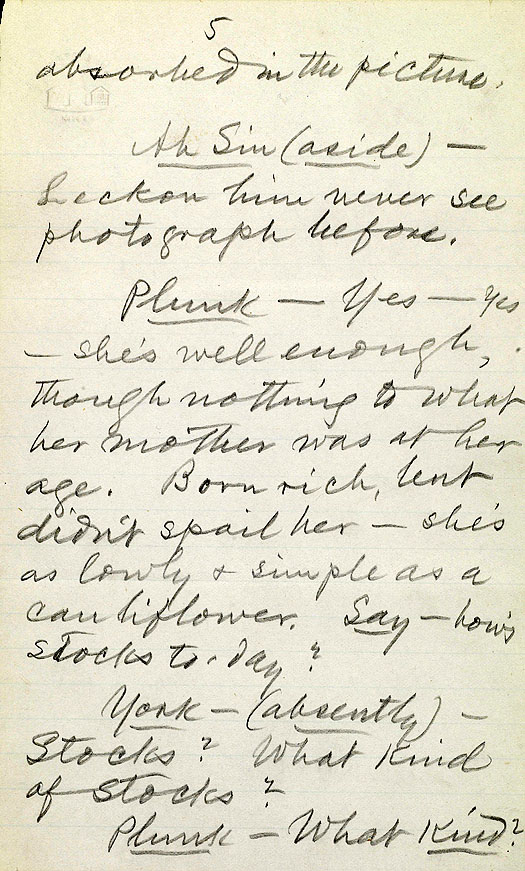 5
absorbed in the picture.
Ah Sin (aside) —
Leckon him never see
photograph before.
Plunk — Yes — yes
— she's well enough,
though nothing to what
her mother was at her
age. Born rich, but
didn't spoil her — she's
as lowly & simple as a
cauliflower. Say — how's
stocks to-day?
York — (absently) —
Stocks? What kind
of stocks?
Plunk — What kind?